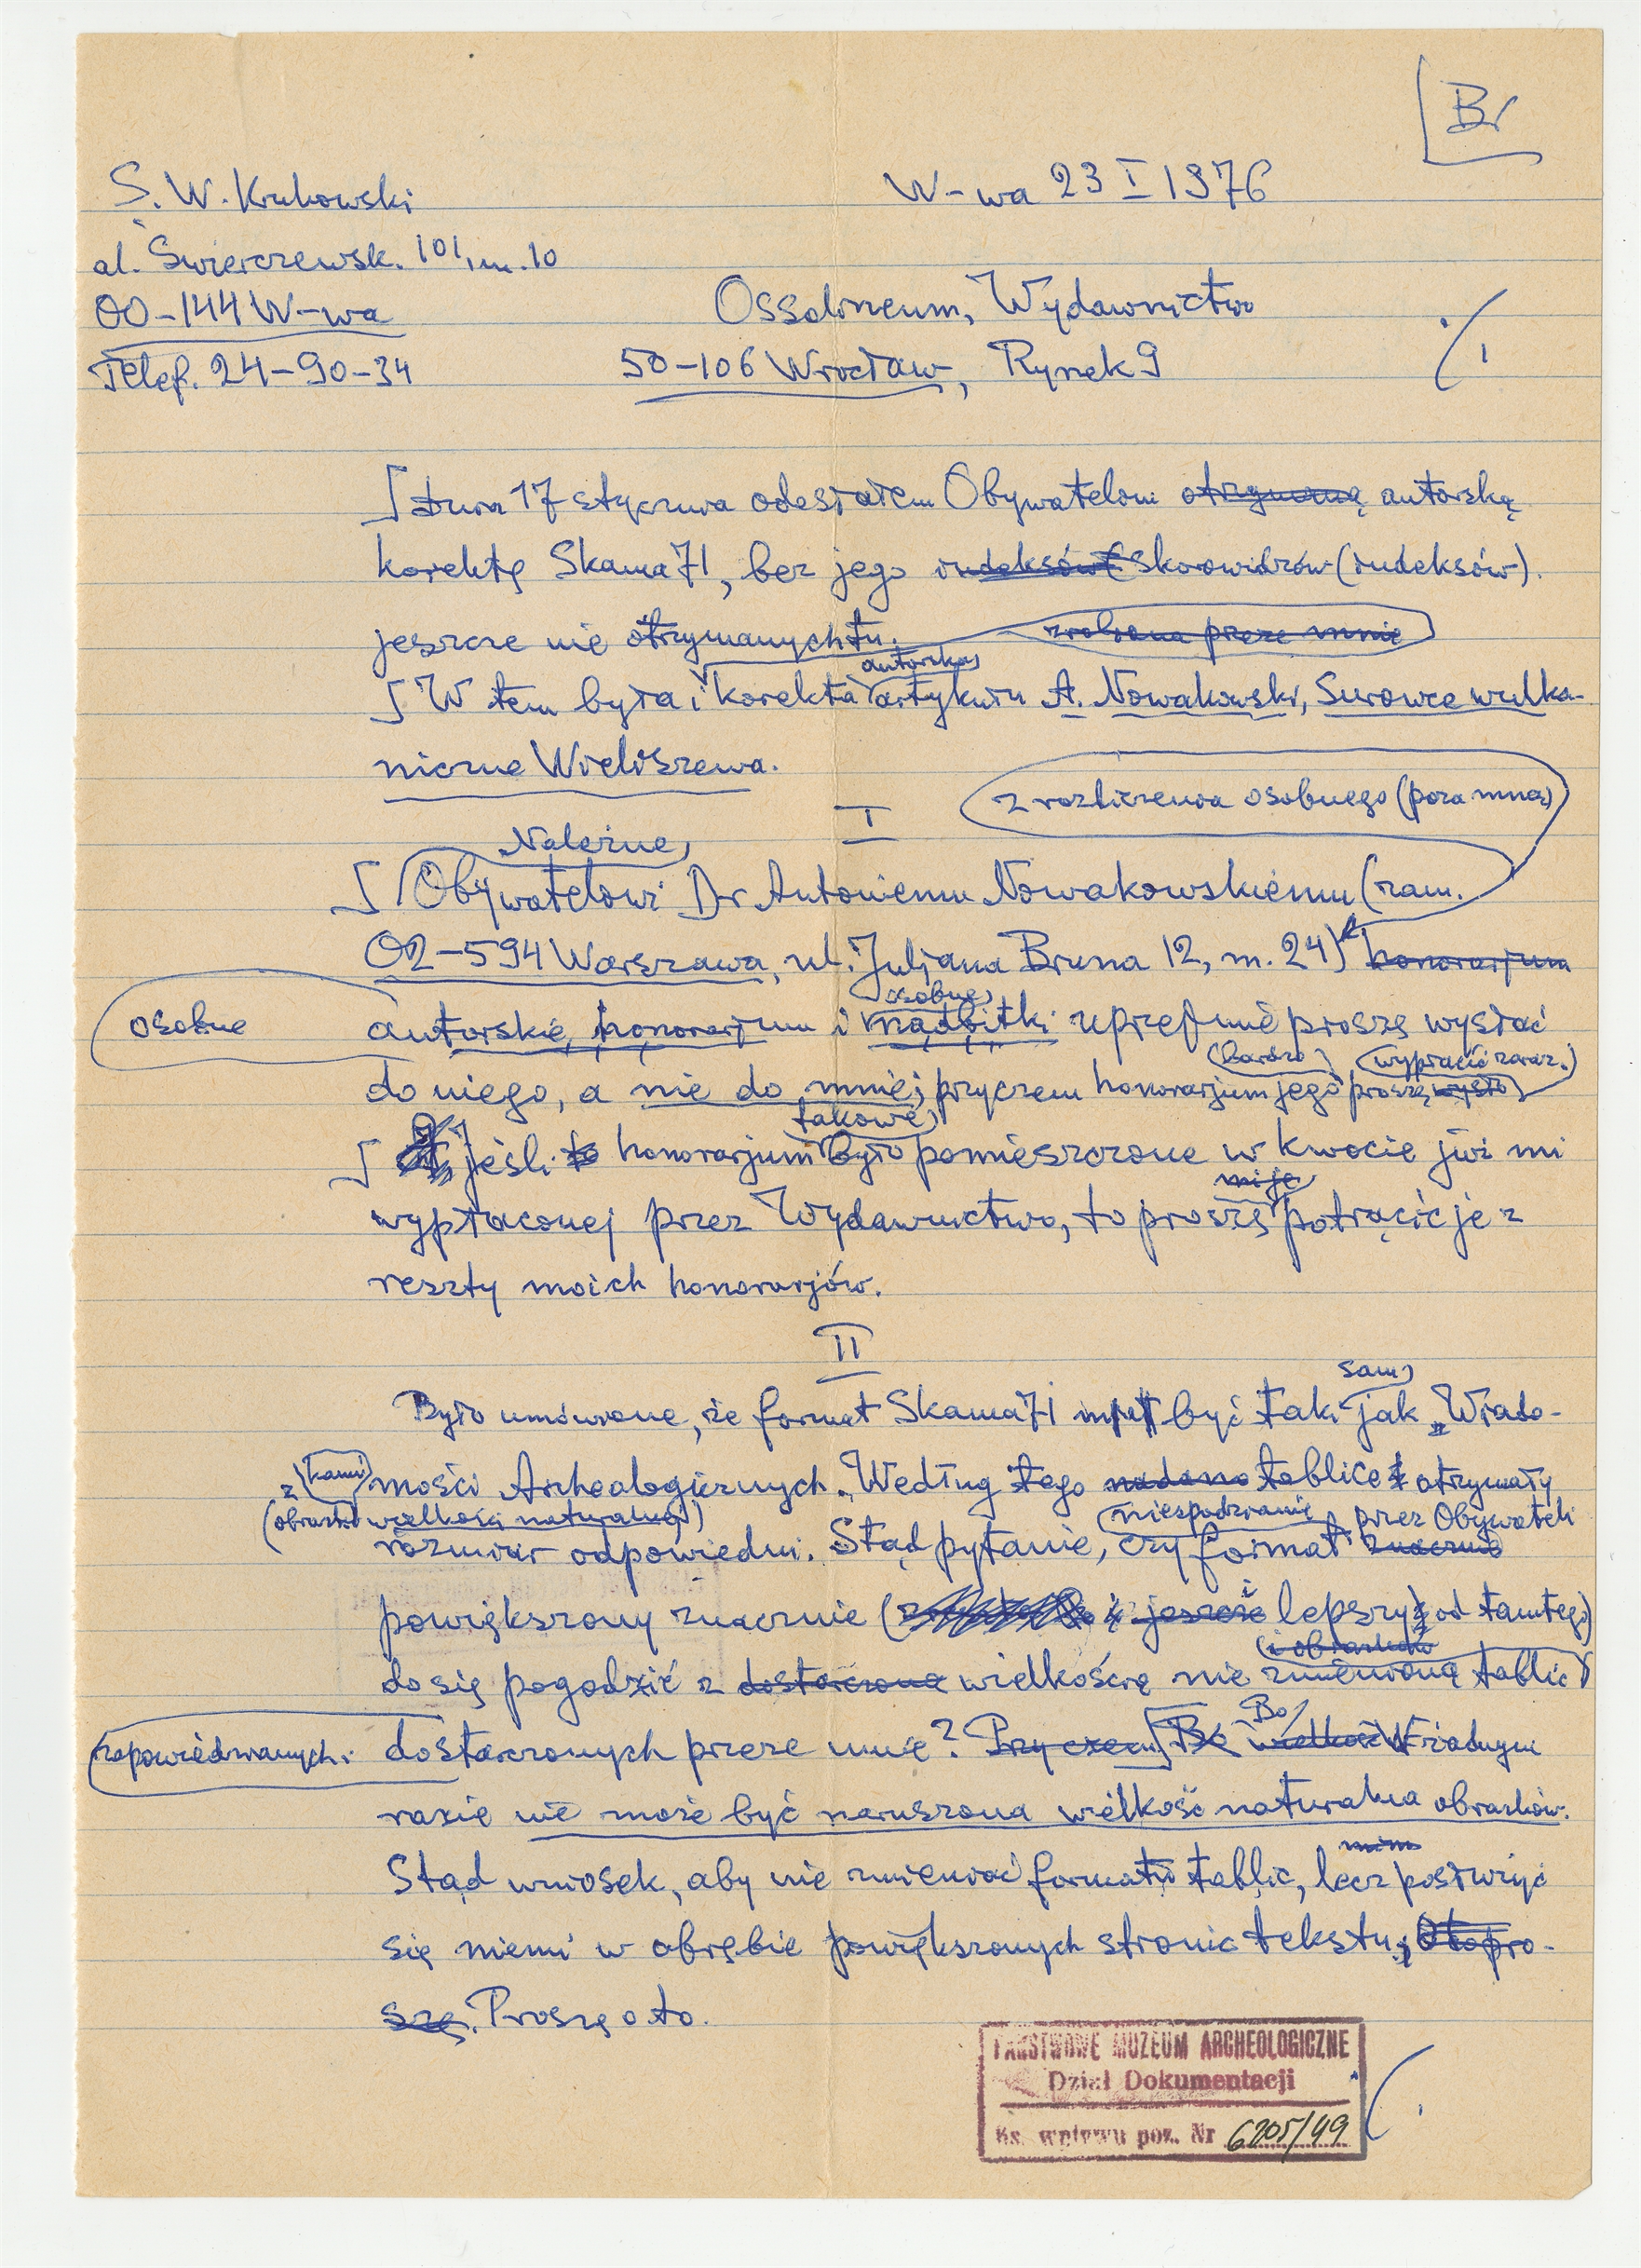 Br
S. W. Krukowski
W-wa 23 I 1976
al. Świerczewsk. 101, m. 10
00-144 W-wa
Ossolineum, Wydawnictwo
Telef. 24-90-34
50-106 Wrocław, Rynek 9
dnia 17 stycznia odesłałem Obywatelom otrzymaną autorską
korektę Skama 71, bez jego indeksów skorowidzów (indeksów).
jeszcze nie otrzymanych tu. zrobiona przeze mnie
autorska
W tem była i korekta artykułu A. Nowakowski, Surowce wulka-
niczne Wieliszewa.
I
z rozliczenia osobnego (poza mną)
Należne
Obywatelowi Dr Antoniemu Nowakowskiemu (zam.
02-594 Warszawa, ul. Juljana Bruna 12, m. 24) honorarjum
osobne
osobne autorskie, honorarjum i nadbitki uprzejmie proszę wysłać
bardzo wypłacić zaraz.
do niego, a nie do mnie; przyczem honorarjum jego proszę wysła
takowe
jeśli to honorarjum było pomieszczone w kwocie już mi
mi je
wypłaconej przez Wydawnictwo, to proszę potrącić je z
reszty moich honorarjów.
II
sam
Było umówione, że format Skama 71 być taki jak „Wiado-
mości Archeologicznych". Według tego nadano tablice otrzymały
(obrazki wielkości naturalnej) niespodzianie przez Obywateli
rozmiar odpowiedni. Stąd pytanie, czy format znacznie
powiększony znacznie ( i jeszcze lepszy od tamtego)
i obrazków
da się pogodzić z dostarczoną wielkością nie zmienioną tablic
Bo
zapowiedzianych. dostarczonych przeze mnie? Przyczem Bo wielkość W żadnym
razie nie może być naruszona wielkość naturalna obrazków.
Stąd wniosek, aby nie zmieniać formatu tablic, lecz posłużyć
się niemi w obrębie powiększonych stronic tekstu, O to pro-
szę. Proszę o to.
PAŃSTWOWE MUZEUM ARCHEOLOGICZNE
Dział Dokumentacji
Ks. wpływu poz. Nr 6205/49